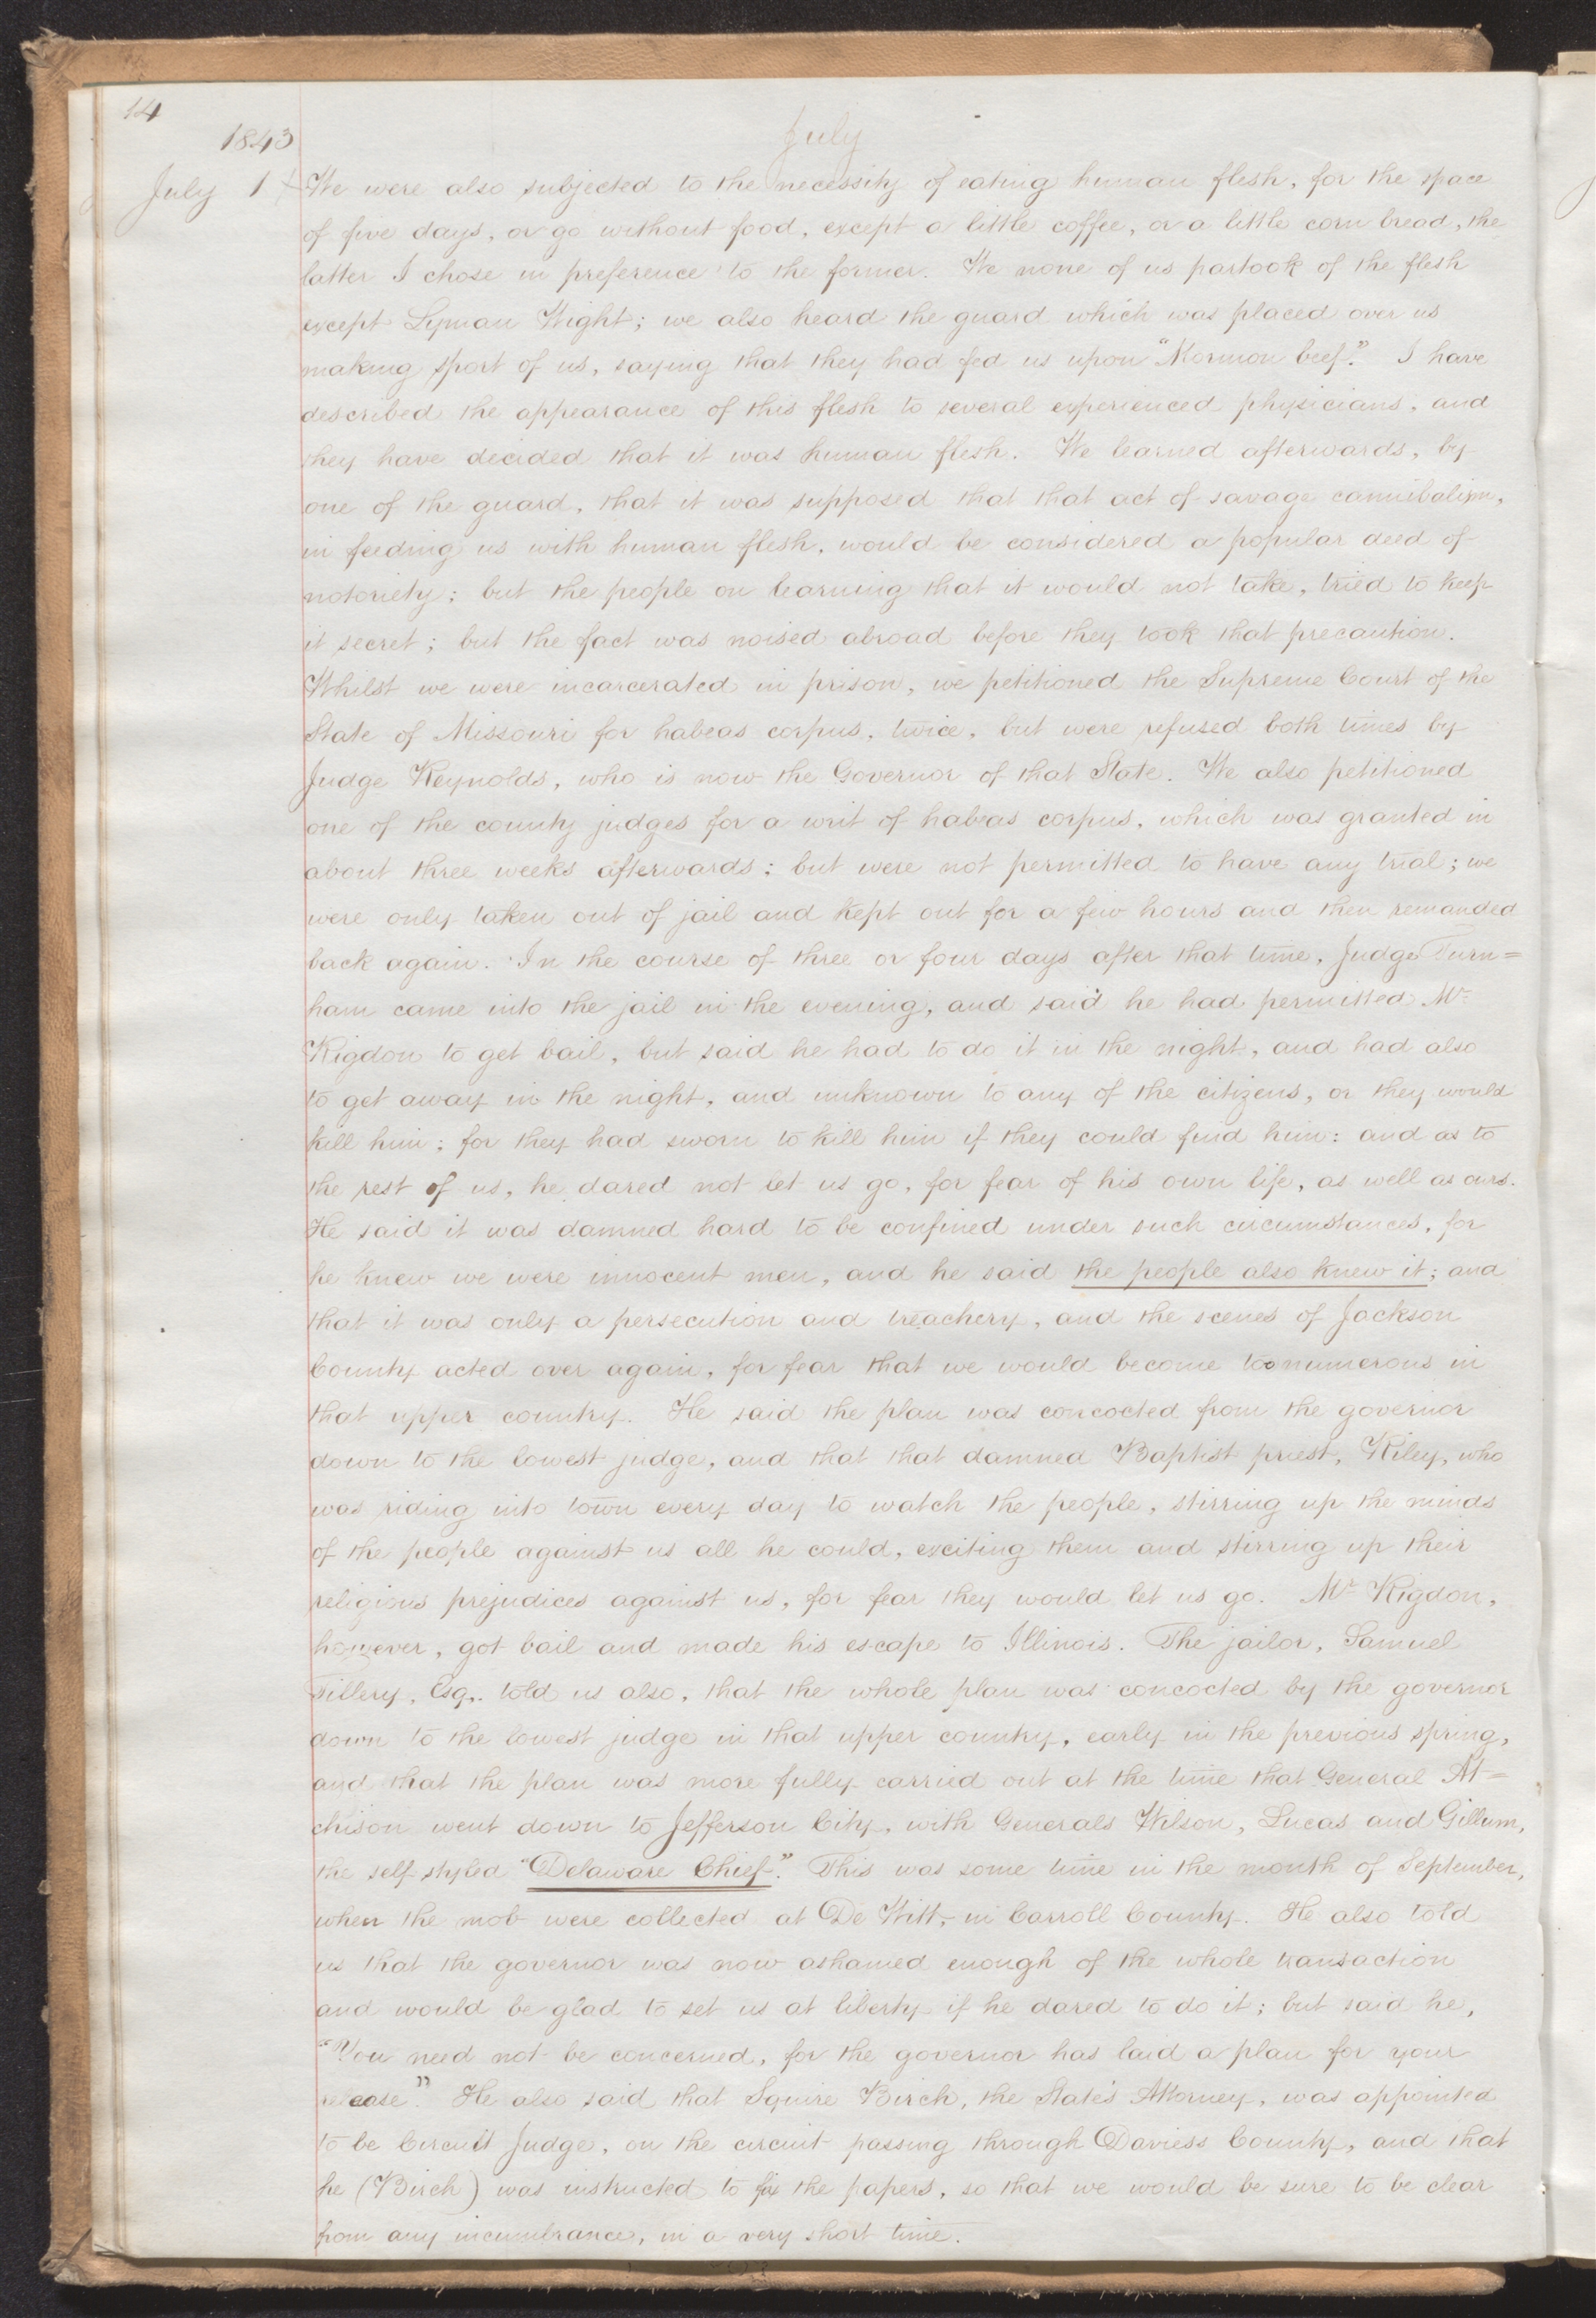 14
1843
July
July 1 + We were also subjected to the necessity of eating human flesh, for the space
of five days, or go without food, except a little coffee, or a little corn bread, the
latter I chose in preference to the former. We none of us partook of the flesh
except Lyman Wight; we also heard the guard which was placed over us
making sport of us, saying that they had fed us upon "Mormon beef." I have
described the appearance of this flesh to several experienced physicians, and
they have decided that it was human flesh. We learned afterwards, by
one of the guard, that it was supposed that that act of savage cannibalism,
in feeding us with human flesh, would be considered a popular deed of
notoriety; but the people on learning that it would not take, tried to keep
it secret; but the fact was noised abroad before they took that precaution.
Whilst we were incarcerated in prison, we petitioned the Supreme Court of the
State of Missouri for habeas corpus, twice, but were refused both times by
Judge Reynolds, who is now the Governor of that State. We also petitioned
one of the county judges for a writ of habeas corpus, which was granted in
about three weeks afterwards; but were not permitted to have any trial; we
were only taken out of jail and kept out for a few hours and then remanded
back again. In the course of three or four days after that time, Judge Turn=
ham came into the jail in the evening, and said he had permitted Mr.
Rigdon to get bail, but said he had to do it in the night, and had also
to get away in the night, and unknown to any of the citizens, or they would
kill him; for they had sworn to kill him if they could find him: and as to
the rest of us, he dared not let us go, for fear of his own life, as well as ours.
He said it was damned hard to be confined under such circumstances, for
he knew we were innocent men, and he said the people also knew it; and
that it was only a persecution and treachery, and the scenes of Jackson
County acted over again, for fear that we would become too numerous in
that upper country. He said the plan was concocted from the governor
down to the lowest judge, and that that damned Baptist priest, Riley, who
was riding into town every day to watch the people, stirring up the minds
of the people against us all he could, exciting them and stirring up their
religious prejudices against us, for fear they would let us go. Mr Rigdon,
however, got bail and made his escape to Illinois. The jailor, Samuel
Tillery, Esq,. told us also, that the whole plan was concocted by the governor
down to the lowest judge in that upper country, early in the previous spring,
and that the plan was more fully carried out at the time that General At=
chison went down to Jefferson City, with Generals Wilson, Lucas and Gillum,
the self styled "Delaware Chief." This was some time in the month of September,
when the mob were collected at De Witt, in Carroll County. He also told
us that the governor was now ashamed enough of the whole transaction
and would be glad to set us at liberty if he dared to do it; but said he,
"You need not be concerned, for the governor has laid a plan for your
release." He also said that Squire Birch, the State's Attorney, was appointed
to be Circuit Judge, on the circuit passing through Daviess County, and that
he (Birch) was instructed to fix the papers, so that we would be sure to be clear
from any incumbrance, in a very short time.